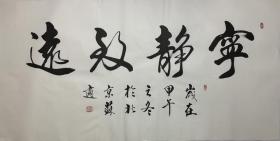 寧静致遠
歲在
甲午
之冬
於北
京蘇
適